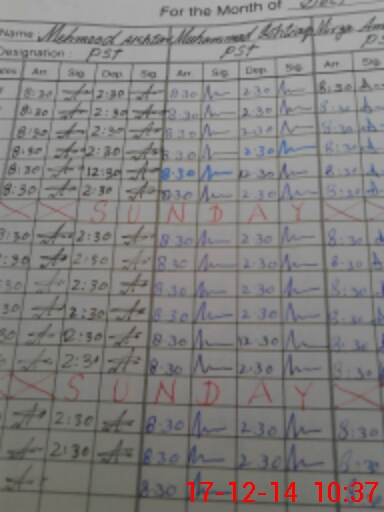 For the Month of Dec
Name Mehmood Akhtar Muhammad Ishtiaq Mirza
Designation: PST PST
Arr. Sig. Dep. Sig. Arr. Sig. Dep. Sig. Arr.
8:30 2:30 8:30 2:30 8:30
8:30 2:30 8:30 2:30 8:30
8:30 2:30 8:30 2:30 8:30
8:30 2:30 8:30 2:30 8:30
8:30 12:30 8:30 12:30 8:30
8:30 2:30 8:30 2:30 8:30
SUNDAY
8:30 2:30 8:30 2:30 8:30
2:30 8:30 2:30 8:30
2:30 8:30 2:30 8:30
2:30 8:30 2:30 8:30
2:30 8:30 12:30 8:30
2:30 8:30 2:30 8:30
SUNDAY
2:30 8:30 2:30 8:30
2:30 8:30 2:30 8:30
8:30
17-12-14 10:37